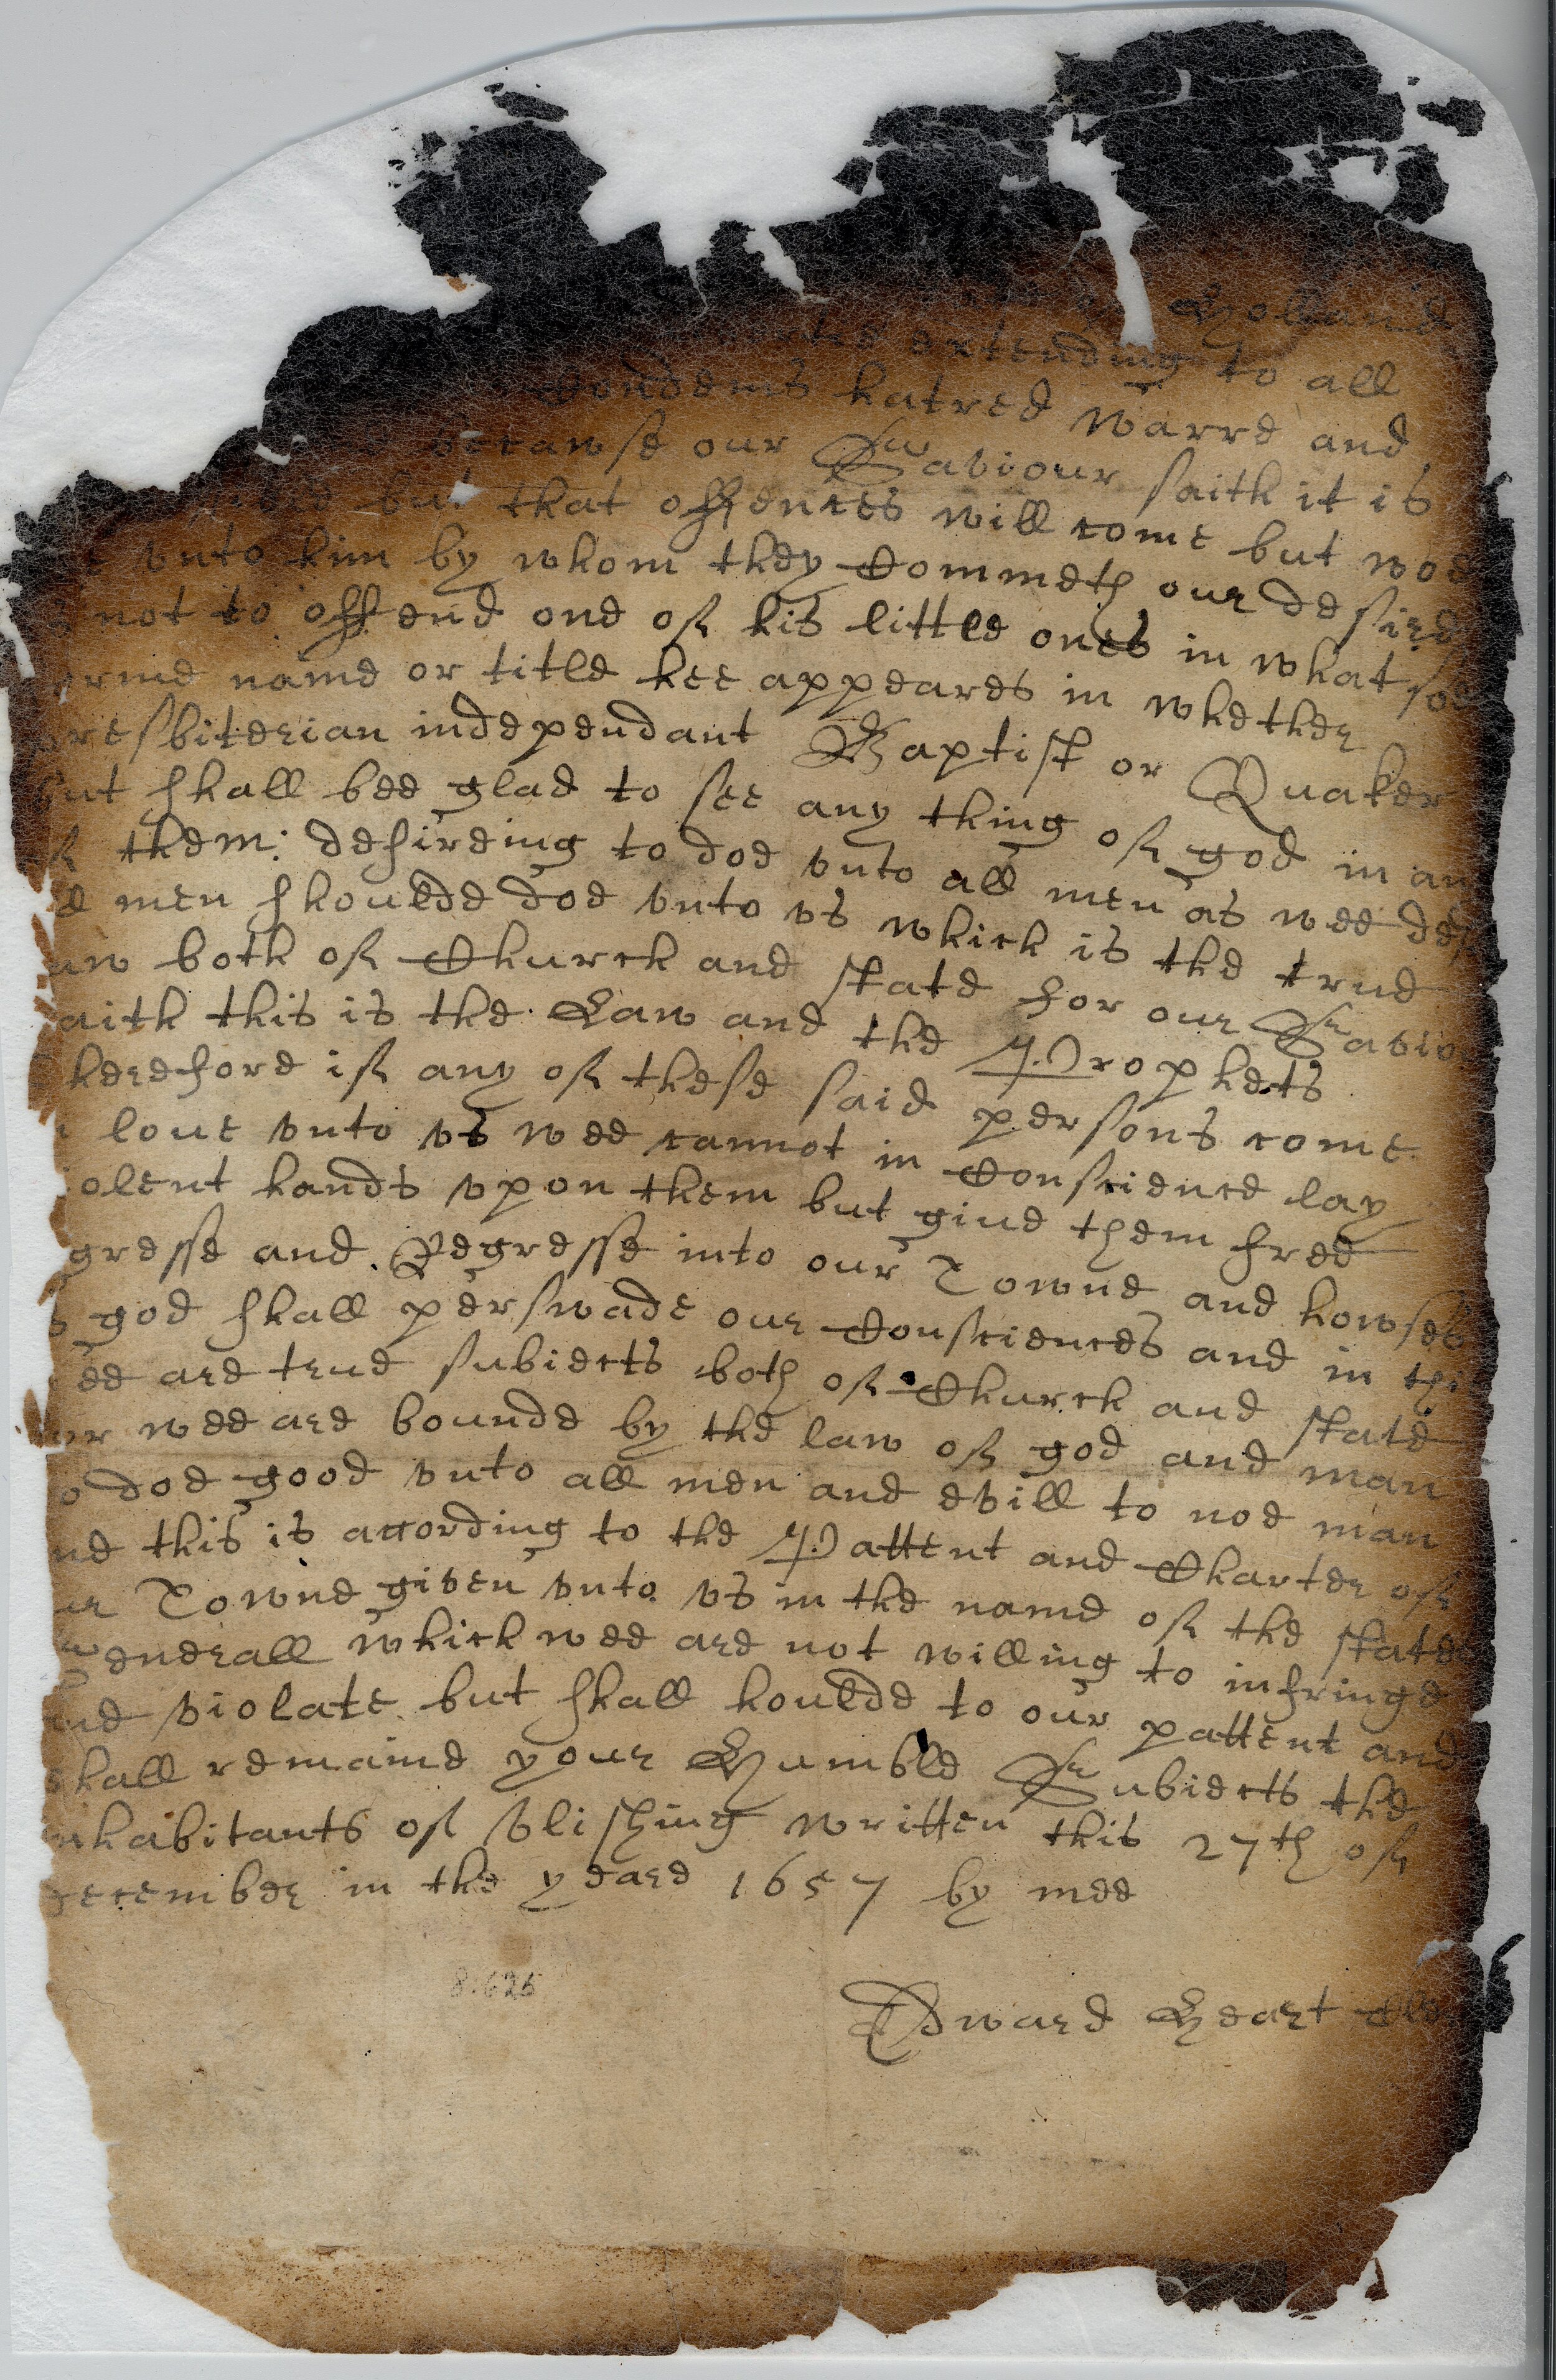 Holland
extending to all
Condems hatred warre and
becawse our Saviour saith it is
but that offences will come but woe
vnto him by whom they Commeth our desire
not to offend one of his little ones in whatsoe
orme name or title hee appeares in whether
resbiterian independant Baptist or Quaker
ut shall bee glad to see any thing of god in any
f them: desireing to doe vnto all men as wee des
ll men shoulde doe vnto vs which is the true
aw both of Church and state for our Savio
aith this is the Law and the Prophets
herefore if any of these said persons come
love vnto vs wee cannot in Conscience lay
iolent hands vpon them but give them free
gresse and Regresse into our Towne and howses
s god shall perswade our Consciences and in thi
ee are true subiects both of Church and state
or wee are bounde by the law of god and man
o doe good vnto all men and evill to noe man
nd this is according to the Pattent and Charter of
ur Towne given vnto vs in the name of the state
Generall which wee are not willing to infringe
and violate but shall houlde to our pattent and
shall remaine your Humble Subiects the
nhabitants of Vlishing written this 27th of
December in the yeare 1657 by mee
8.625
Edward Heart Cler